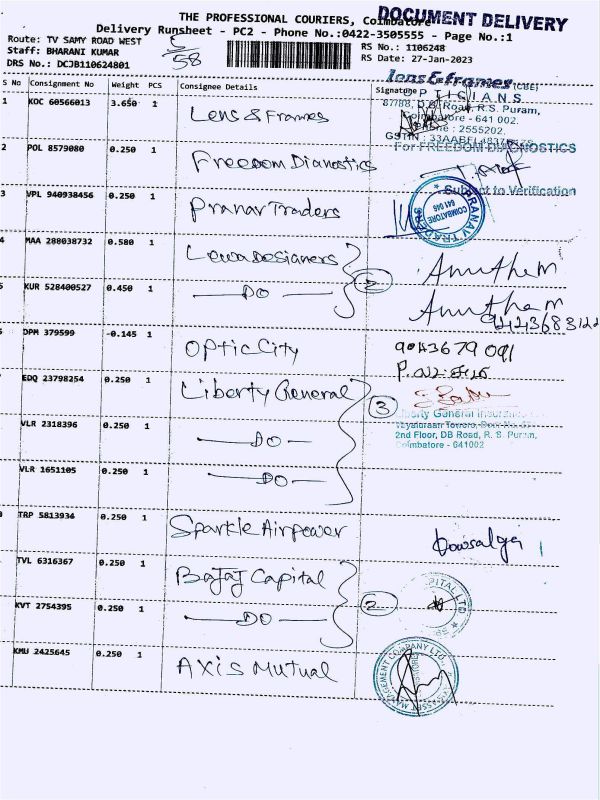 THE PROFESSIONAL COURIERS, Coimbatore
DOCUMENT DELIVERY
Delivery Runsheet - PC2 - Phone No.:0422-3505555 - Page No.:1
Route: TV SAMY ROAD WEST
Staff: BHARANI KUMAR
DRS No.: DCJB110624801
58
RS No.: 1106248
RS Date: 27-Jan-2023
S No Consignment No Weight PCS Consignee Details Signature
1 KOC 60566013 3.650 1 Lens & Frames
lens & frames (CBE)
OPTICIANS
87/88, D.B. Road, R.S. Puram,
Coimbatore - 641 002.
Phone : 2555202.
2 POL 8579080 0.250 1 Freedom Dianostics
For FREEDOM DIAGNOSTICS
Subject to Verification
3 VPL 940938456 0.250 1 Pranav Traders
PRANAV TRADERS
COIMBATORE
641 045
4 MAA 288038732 0.580 1 Lewa Designers
2 Amutha M
KUR 528400527 0.450 1 DO
Amutha M
94423683122
DPM 379599 -0.145 1 Optic City
9043679091
EDQ 23798254 0.250 1 Liberty General
3
Liberty General Insurance
2nd Floor, DB Road, R. S. Puram,
Coimbatore - 641002
VLR 2318396 0.250 1 DO
VLR 1651105 0.250 1 DO
TRP 5813934 0.250 1 Sparkle Airpower
Kowsalya
TVL 6316367 0.250 1 Bajaj Capital
2
CAPITAL LTD
KVT 2754395 0.250 1 DO
KMU 2425645 0.250 1 Axis Mutual
ASSET MANAGEMENT COMPANY LTD.